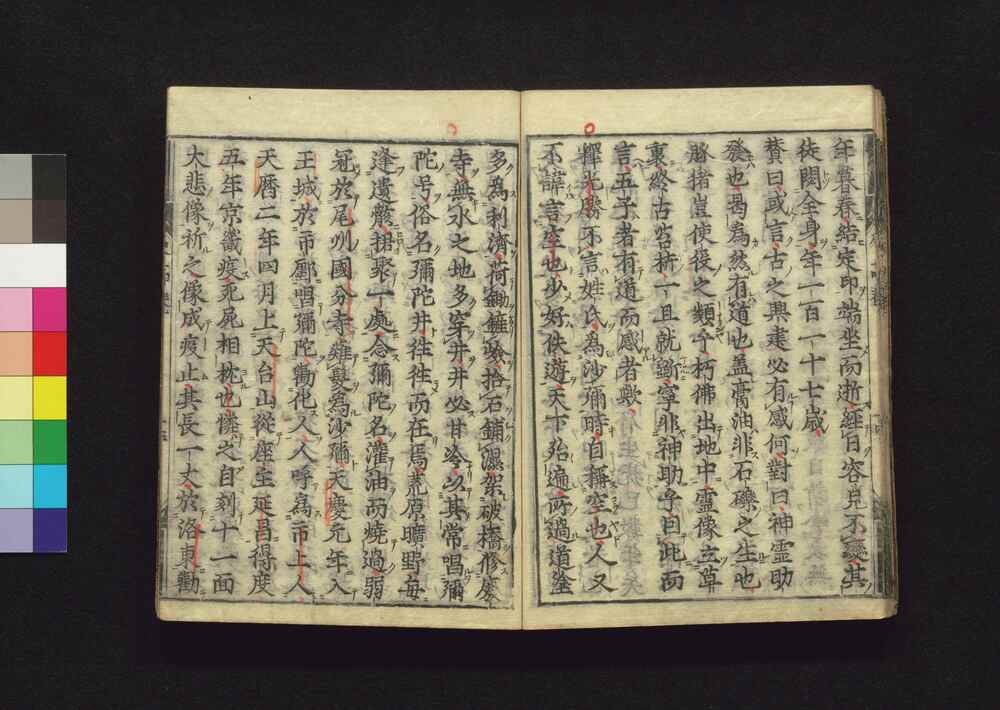 年暮春結定印端坐而逝經日容皃不變其
徒閱全身年一百一十七歲
贊曰或言古之興建必有感何對曰神靈助
發也曷為然有道也蓋膏油非石礫之生也
豈使後之類乎朽佛出地中靈像立草
裏終古若一且就鋤寧非神助乎曰此而
言五子者有道而感者歟
釋光勝不言姓氏為沙彌時自稱空也人又
不諱言空也少好佚遊天下殆遍所過道塗
多為利濟荷鋤鏟嶮拾石鋪濕架破橋修廢
寺無水之地多穿井井必甘冷以其常唱彌
陀号俗名彌陀井往往而在焉荒原曠野每
逢遺骸拑聚一處念彌陀名灌油而燒過弱
冠於尾州國分寺薙髮為沙彌天慶元年入
王城於市廛唱彌陀勸化人人呼為市上人
天曆二年四月上天台山從座主延昌得度
五年京畿疫死屍相枕也憐之自刻十一面
大悲像祈之像成疫止其長一丈於洛東勸